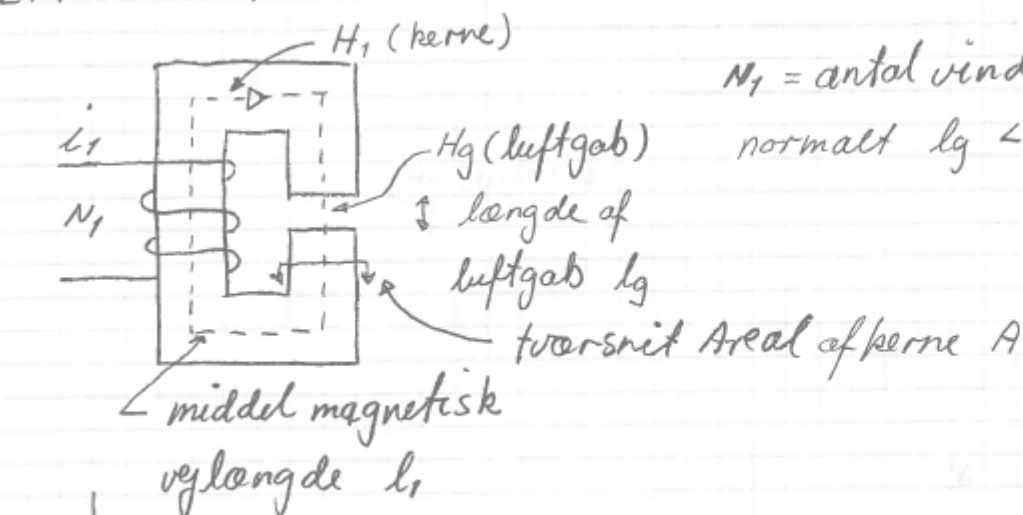 H₁ (kerne)
N₁ = antal vind
i₁
Hg (luftgab)
normalt lg <
N₁
længde af
luftgab lg
tværsnit Areal af kerne A
middel magnetisk
vejlængde l₁